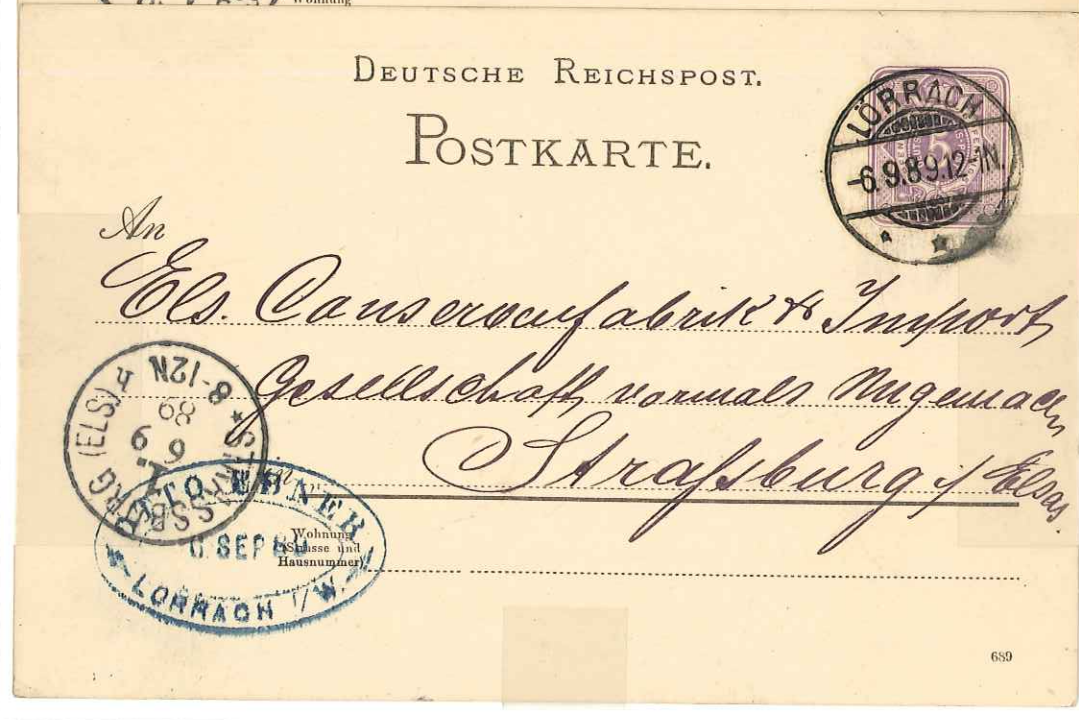 Wohnung
DEUTSCHE REICHSPOST.
POSTKARTE.
LÖRRACH
-6.9.89.12-1N.
5
An
Els. Conservenfabrik & Import
Gesellschaft vormals Nugemach
Straßburg i/Elsas
STRASSBURG (ELS) A
6 9
89
8-12N
OTTO EBNER
6 SEP 89
LÖRRACH i/W.
in
Wohnung
(Strasse und
Hausnummer)
689